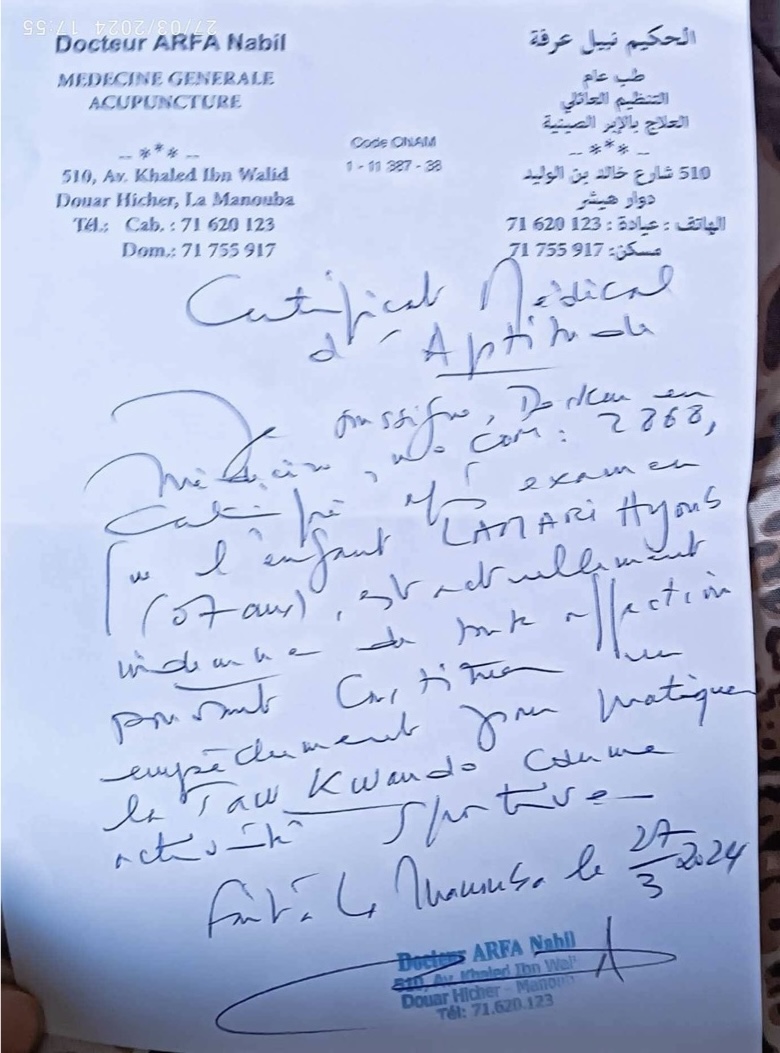 27/03/2024 17:55
Docteur ARFA Nabil
MEDECINE GENERALE
ACUPUNCTURE
-- *** --
510, Av. Khaled Ibn Walid
Douar Hicher, La Manouba
Tél.: Cab. : 71 620 123
Dom.: 71 755 917
Code CNAM
1 - 11 387 - 38
الحكيم نبيل عرفة
طب عام
التنظيم العائلي
العلاج بالإبر الصينية
-- *** --
510 شارع خالد بن الوليد
دوار هيشر
الهاتف : عيادة : 123 620 71
مسكن: 917 755 71
Certificat Médical
d'Aptitude
soussigné, Docteur en
Médecine, no com: 2868,
Certifie après examen
que l'enfant LAMARI
(07 ans), est actuellement
indemne de toute affection
pouvant Constituer un
empêchement pour pratiquer
le Taw Kwando comme
activité sportive
Fait à La Manouba le 27/3 2024
Docteur ARFA Nabil
510, Av. Khaled Ibn Wal
Douar Hicher - Manou
Tél: 71.620.123